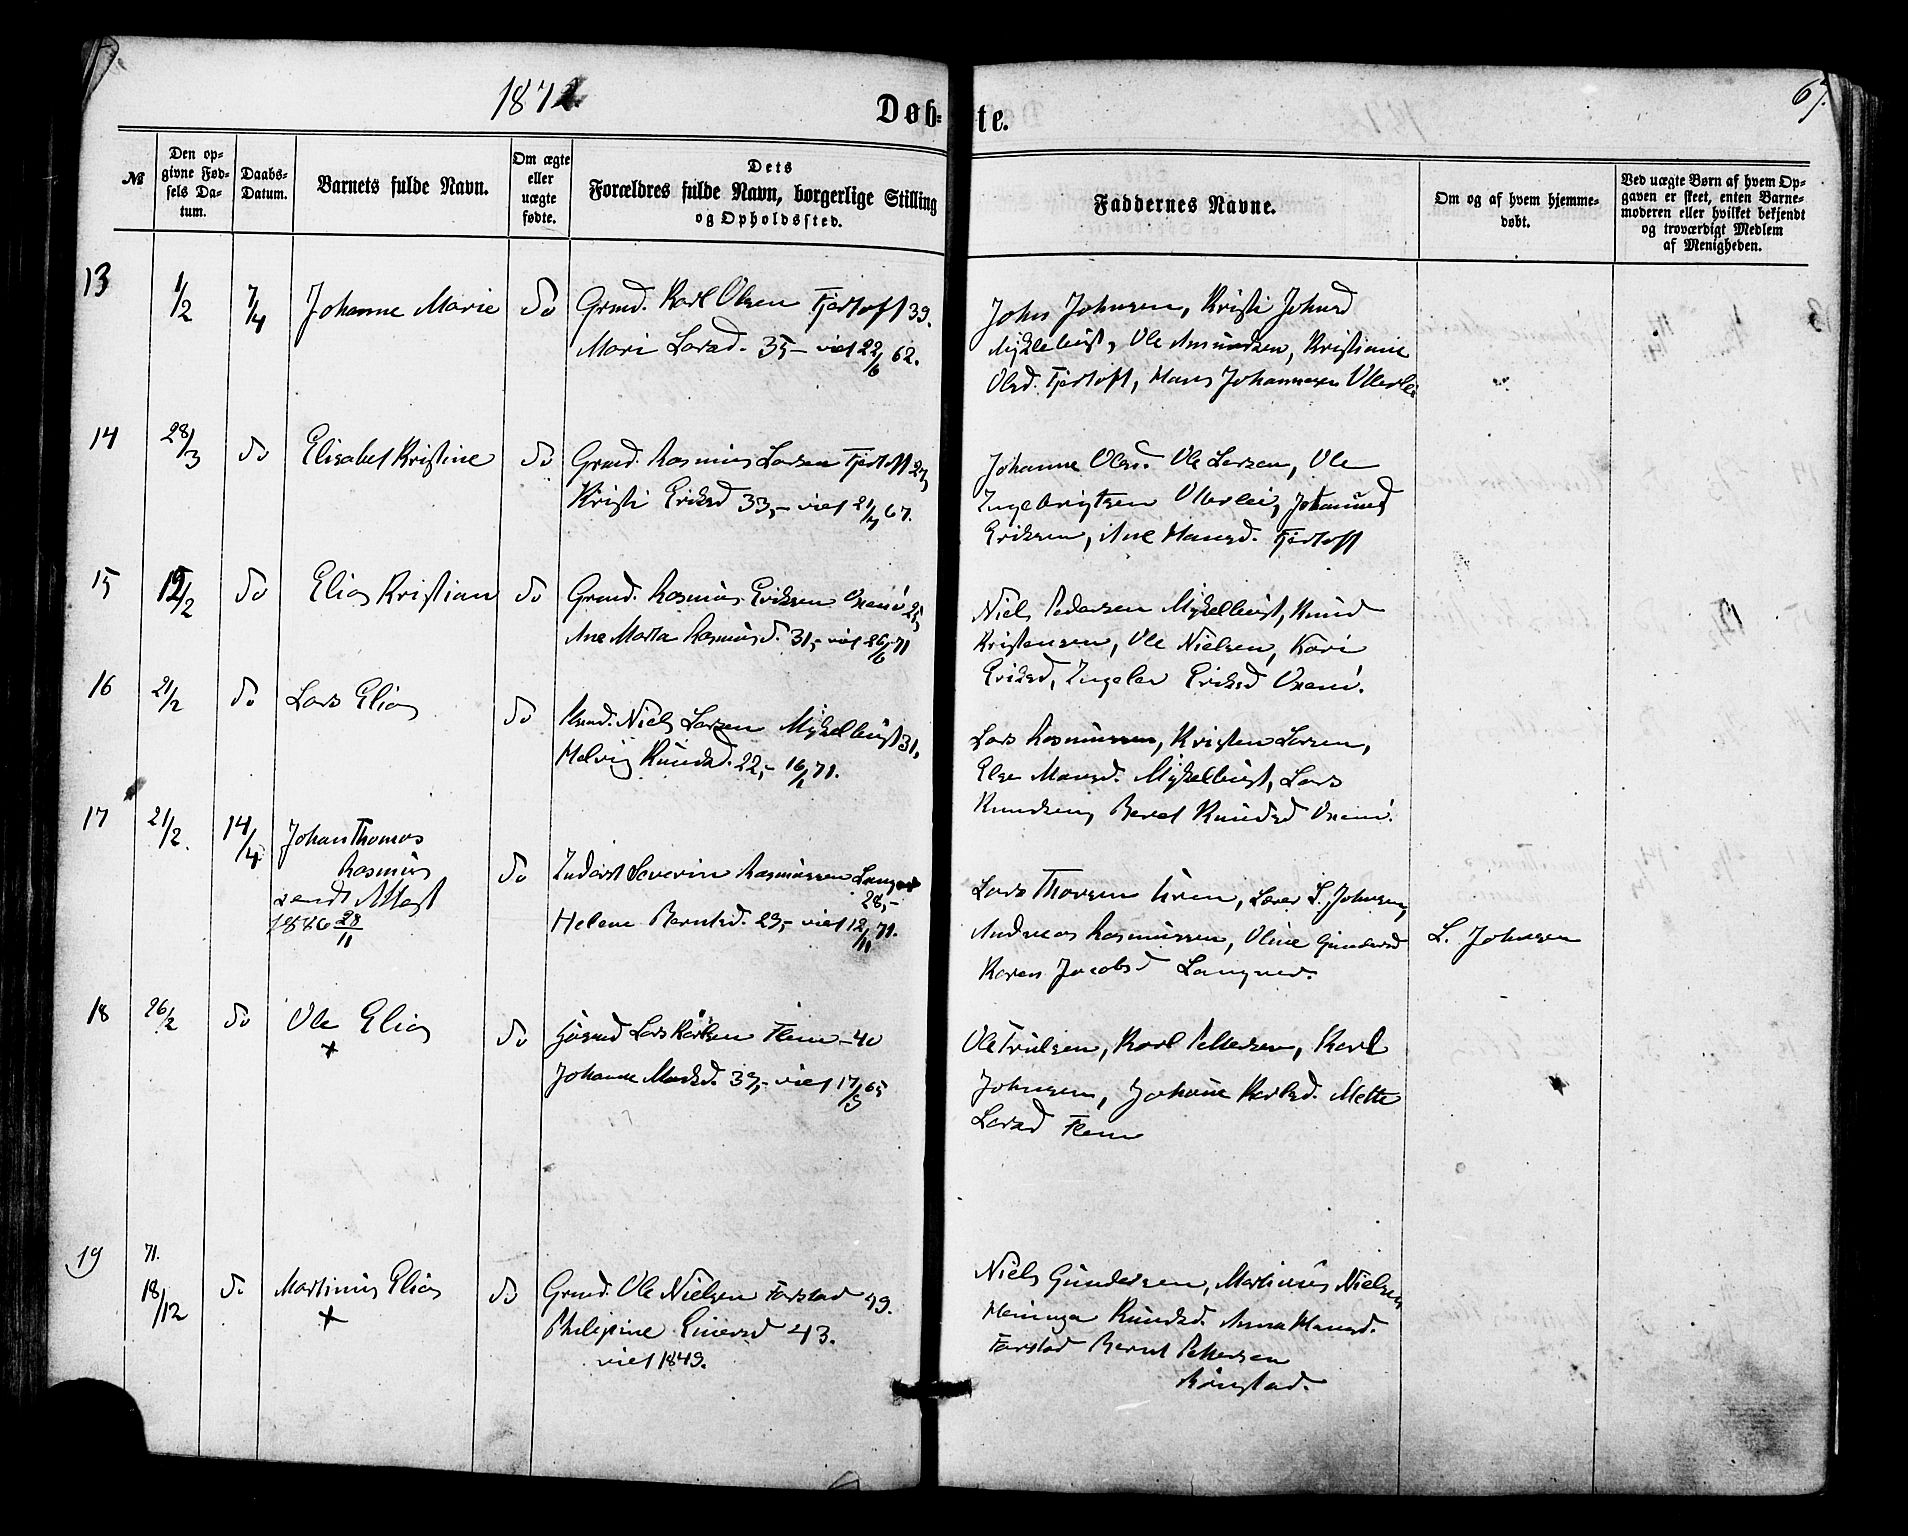 1872.
67.
Døbte.
№
Den opgivne Fødsels Datum.
Daabs-Datum.
Barnets fulde Navn.
Om ægte eller uægte fødte.
Dets Forældres fulde Navn, borgerlige Stilling og Opholdssted.
Faddernes Navne.
Om og af hvem hjemmedøbt.
Ved uægte Børn af hvem Opgaven er skeet, enten Barnemoderen eller hvilket bekjendt og troværdigt Medlem af Menigheden.
13 1/2 7/4 Johanne Marie do Grmd. Karl Olsen Fjertoft 39.
Mari Larsd. 35,- viet 22/6 62.
John Johnsen, Kristi Johnsd
Myklebust, Ole Amundsen, Kristianie
Olsd. Fjertoft, Hans Johannesen Ullerlei
14 28/3 do Elisabet Kristine do Grmd. Rasmus Larsen Fjertoft
Kristi Eriksd 33,- viet 21/7 67.
Johanne Olsd. Ole Larsen, Ole
Ingebrigtsen Ullerlei, Johannes
Eriksen, Ane Hansd. Fjertoft
15 12/2 do Elias Kristian do Grmd. Rasmus Eriksen
Ane Marta Rasmusd. 31,- viet 26/6 71
Niels Pedersen Mykelbust, Knud
Kristensen, Ole Nielsen, Kari
Eriksd, Eriksd
16 21/2 do Lars Elias do Niels Larsen Mykelbust 31,
Helvig Knudsd. 22,- 16/1 71.
Lars Rasmussen, Kristen Larsen,
Else Hansd. Mykelbust, Lars
Knudsen, Beret Knudsd
17 21/2. 14/4 Johan Thomas
Rasmus
sendt Attest
1886 28/11
do Inderst Severin Rasmussen
28,-
Helene Berntsd. 23,- viet 12/11 71.
Lars Thorsen Uren, Lærer L. Johnsen,
Andreas Rasmussen, Oline Gundersd
Karen Jacobsd
L. Johnsen
18 26/2 do Ole Elias do Lars Karlsen Flem - 40
+
Johanne 39,- viet 17/ 65
Ole Trulsen, Karl Pettersen, Karl
Johnsen, Karlsd. Mette
Larsd Flem
19 71.
18/12 do Martinus Elias do Grmd. Ole Nielsen Farstad 49.
+
Philipine 43.
viet 1849.
Niels Gundersen, Martinus Nielsen
Knudsd. Anna Hansd.
Farstad Bernt Pettersen